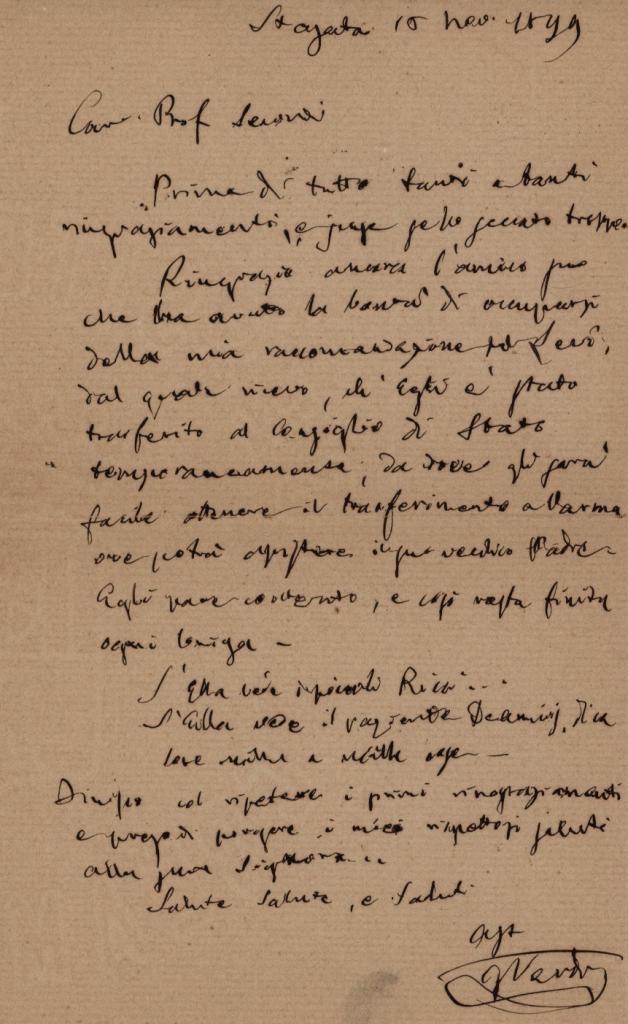 St Agata 18 nov. 1899
Car. Prof
Prima di tutto tanti e tanti
ringraziamenti, e scuse se ho seccato troppo
Ringrazio ancora l'amico suo
che ha avuto la bontà di occuparsi
della mia raccomandazione
dal quale ricevo, ch'Egli è stato
trasferito al Consiglio di Stato
temporaneamente, da dove gli sarà
facile ottenere il trasferimento a Parma
ove potrà assistere il suo vecchio Padre -
Egli pare contento, e così resta finita
ogni briga -
S'Ella vede i piccoli Ricci...
S'Ella vede il paziente Deamicis, dica
loro mille e mille cose -
Finisco col ripetere i primi ringraziamenti
e prego di porgere i miei rispettosi saluti
alla sua Signora...
Salute Salute, e Saluti
aff
GVerdi